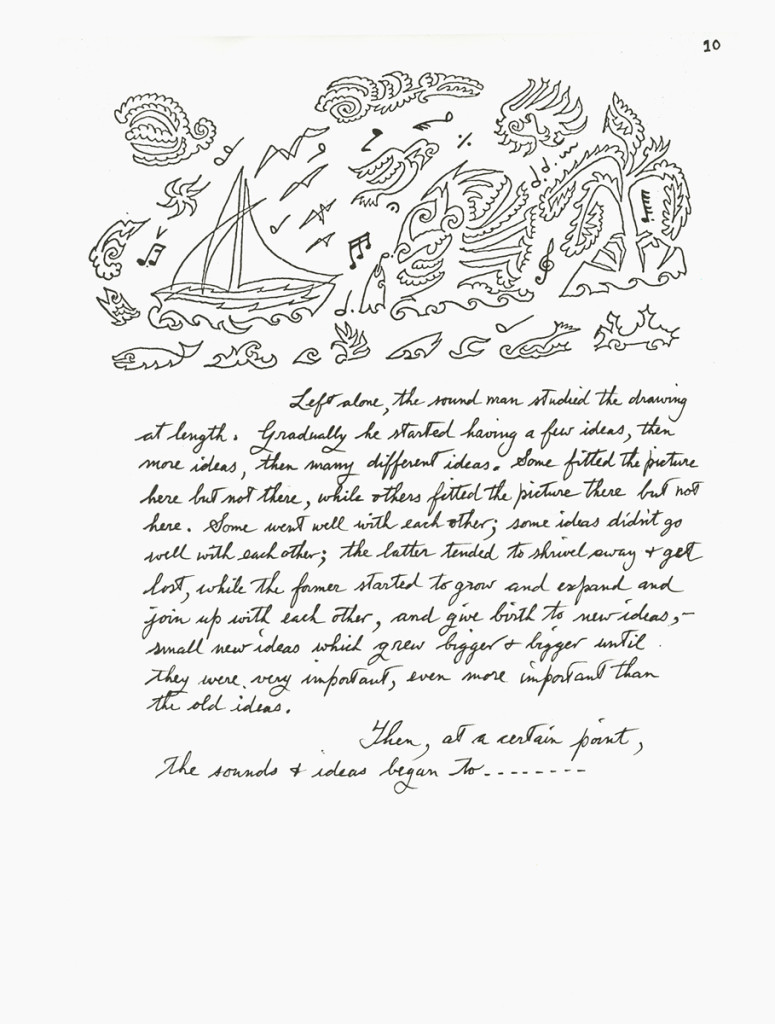 10
Left alone, the sound man studied the drawing
at length. Gradually he started having a few ideas, then
more ideas, then many different ideas. Some fitted the picture
here but not there, while others fitted the picture there but not
here. Some went well with each other; some ideas didn't go
well with each other; the latter tended to shrivel away & get
lost, while the former started to grow and expand and
join up with each other, and give birth to new ideas,-
small new ideas which grew bigger & bigger until
they were very important, even more important than
the old ideas.
Then, at a certain point,
the sounds & ideas began to--------